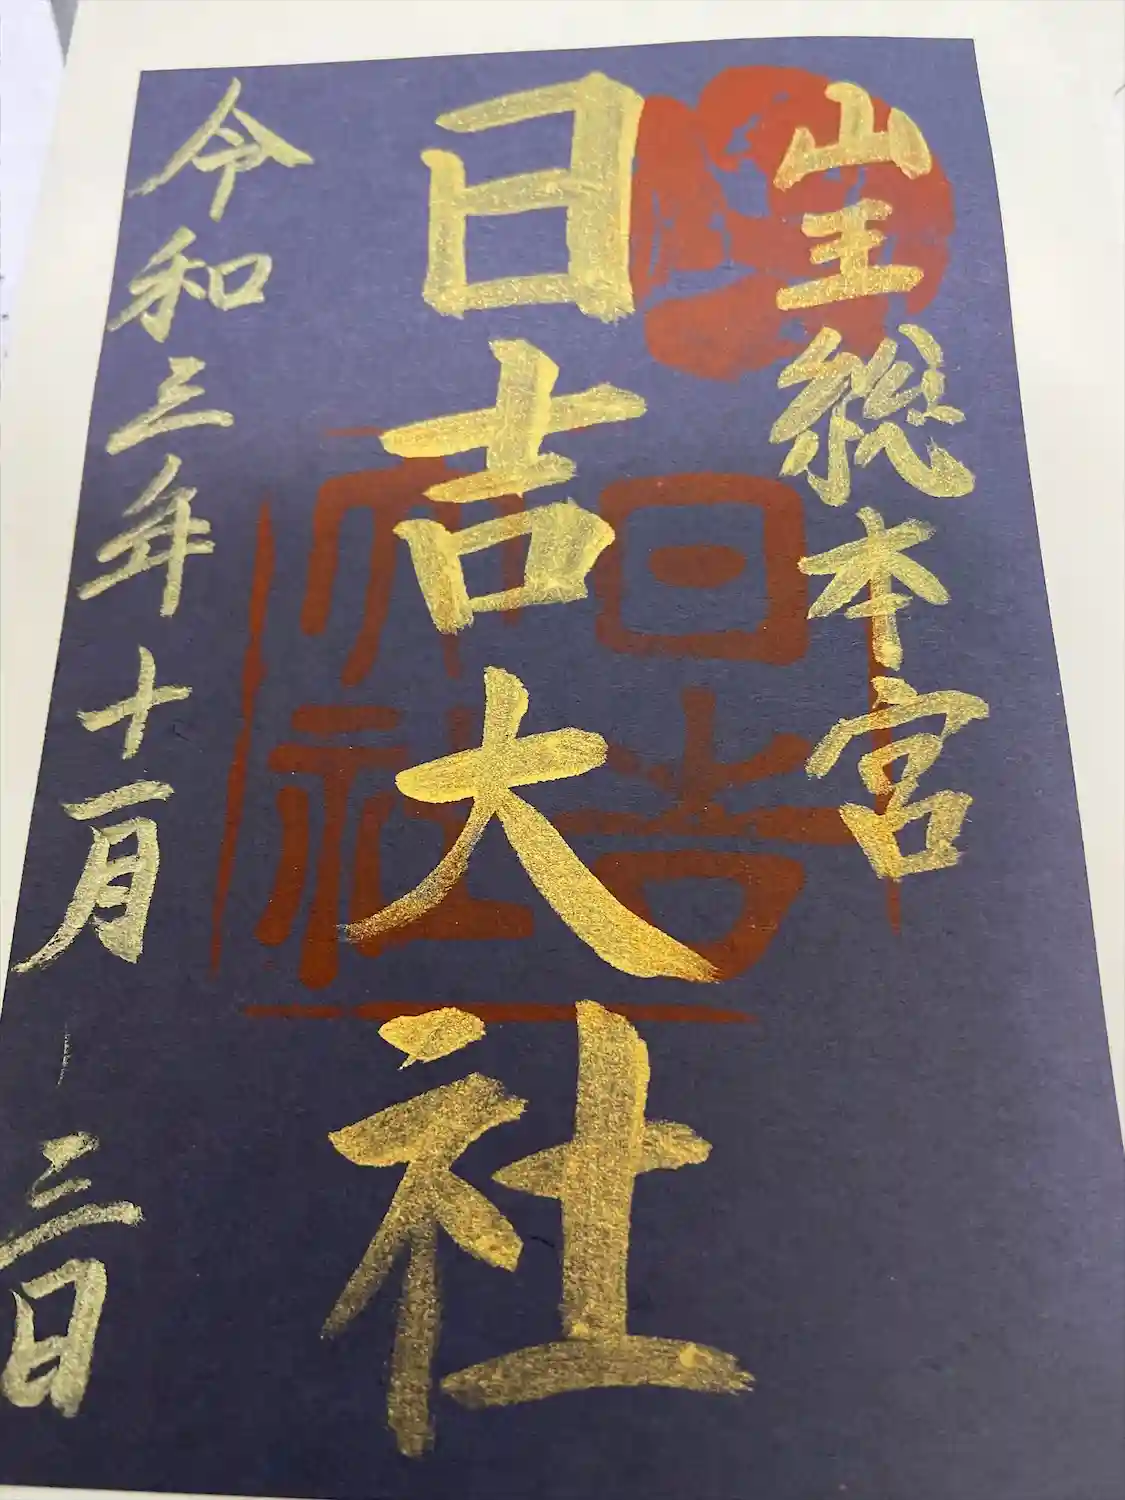 山王総本宮
日吉大社
令和三年十一月三日
日吉
大社